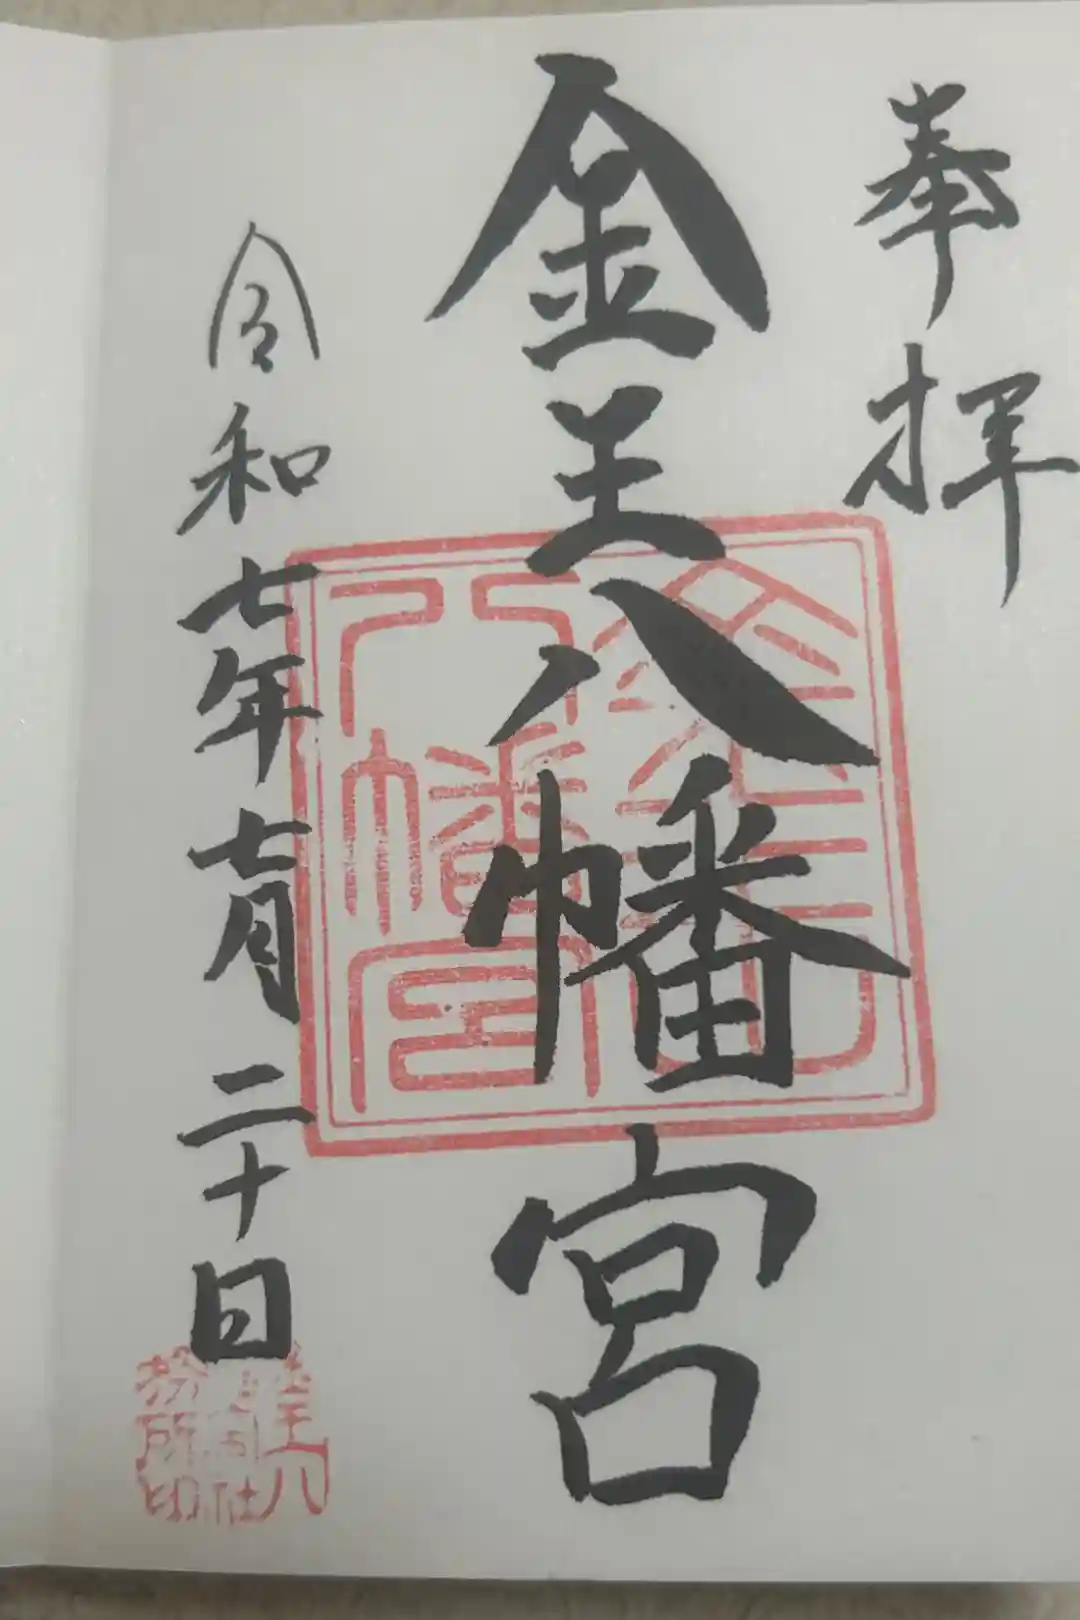 奉拝
金王八幡宮
令和七年七月二十日
金王八幡宮
金王八幡宮社務所印